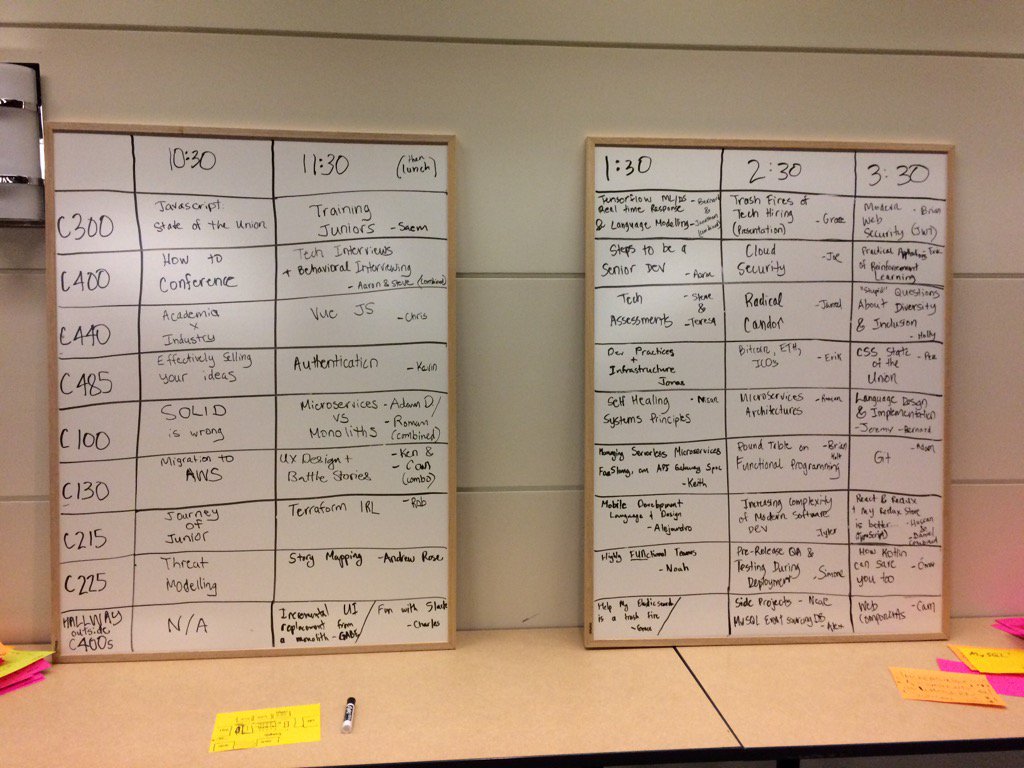 10:30
11:30
(then lunch)
C300
Javascript:
State of the Union
Training
Juniors - Saem
C400
How to
Conference
Tech Interviews
+ Behavioral Interviewing
- Aaron & Steve (combined)
C440
Academia
x
Industry
Vue JS - Chris
C485
Effectively Selling
your ideas
Authentication - Kevin
C100
SOLID
is wrong
Microservices - Adam D/
VS - Roman
Monoliths (combined)
C130
Migration to
AWS
UX Design + - Ken &
Battle Stories - Cam
(combo)
C215
Journey
of
Junior
Terraform IRL - Rob
C225
Threat
Modelling
Story Mapping - Andrew Rose
HALLWAY
outside
C400s
N/A
Incremental UI
replacement from
a monolith - GABE
Fun with Slack
- Charles
1:30
2:30
3:30
Tensorflow ML/DS
Real time Response &
& Language Modelling - Jonathan
(combined)
Trash Fires of
Tech Hiring - Grace
(Presentation)
Modern - Brian
Web
Security (JWT)
Steps to be a
Senior Dev - Aaron
Cloud
Security - Joe
Practical Applications
of Reinforcement
Learning
Tech - Steve
Assessments &
- Teresa
Radical - Jarrod
Candor
"Stupid" Questions
About Diversity
& Inclusion
- Holly
Dev Practices
+
Infrastructure
Jonas
Bitcoin, ETH, - Erik
ICOs
CSS State
of the
Union
Self Healing
Systems Principles
Microservices
Architectures
Language Design
& Implementation
- Jeremy - Bernard
Managing Serverless Microservices
an API Gateway Spec
- Keith
Round Table on - Brian
Functional Programming
Git - Adam
Mobile Development
Language & Design
- Alejandro
Increasing Complexity
of Modern Software
DEV Tyler
React & Redux
+ My Redux Store
is better...
(JavaScript)
& Daniel
combined
Highly FUNctional Teams
- Noah
Pre-Release QA &
Testing During
Deployment - Simone
How Kotlin
can save
you too
Help My Elasticsearch
is a trash fire
- Grace
Side Projects - Neal
MySQL Event sourcing DB
- Alex
Web - Cam
Components
MySQL